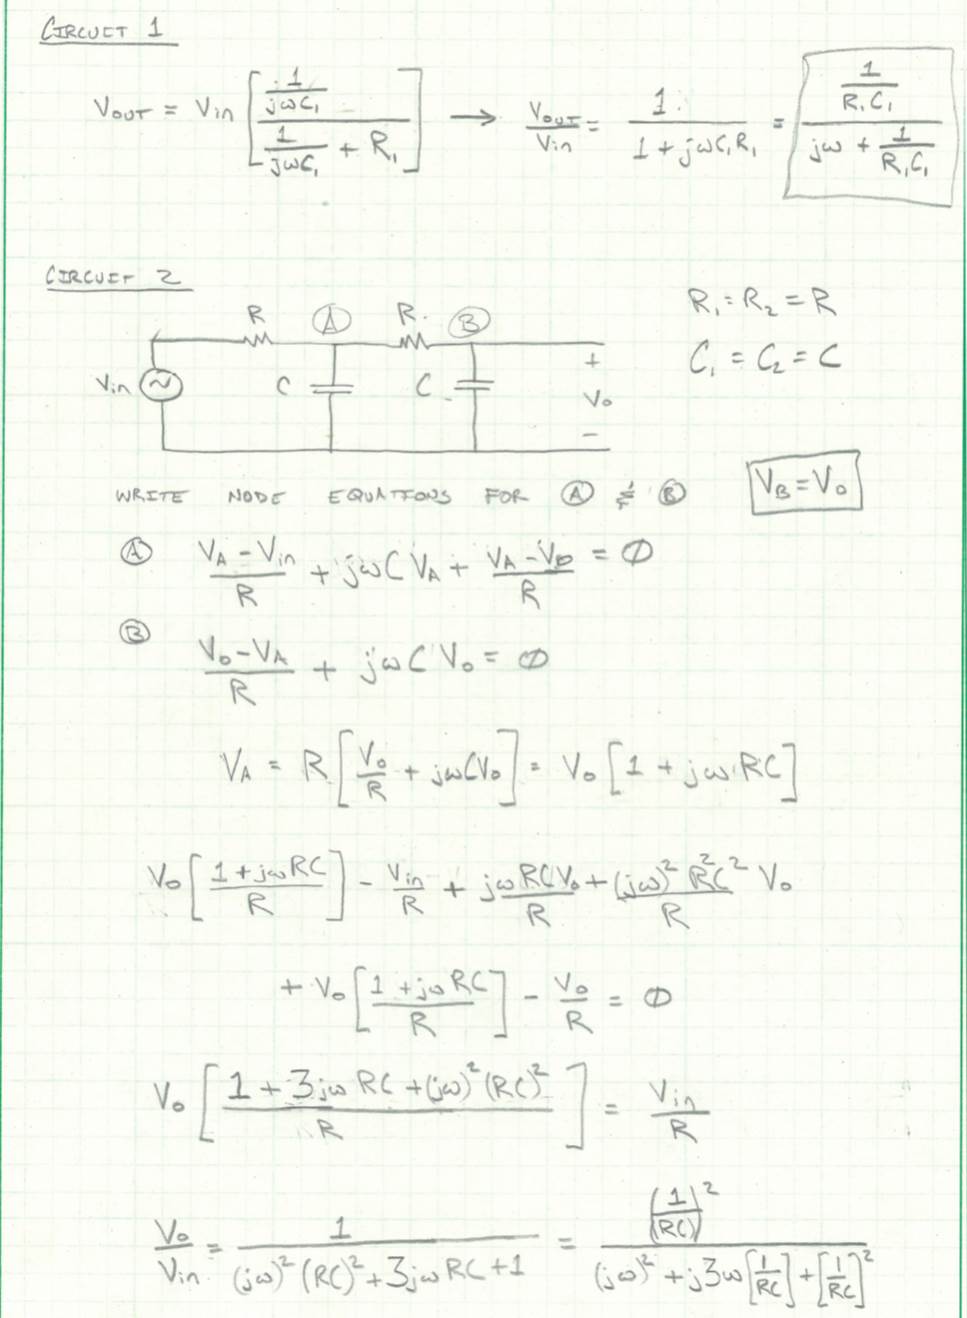 CIRCUIT 1
V_OUT = V_in [ (1/(jωC₁)) / (1/(jωC₁) + R₁) ] → V_OUT/V_in = 1/(1 + jωC₁R₁) = (1/(R₁C₁)) / (jω + 1/(R₁C₁))
CIRCUIT 2
R A R B R₁ = R₂ = R
V_in C C + V₀ − C₁ = C₂ = C
WRITE NODE EQUATIONS FOR A & B V_B = V₀
A (V_A − V_in)/R + jωC V_A + (V_A − V₀)/R = 0
B (V₀ − V_A)/R + jωC V₀ = 0
V_A = R [ V₀/R + jωCV₀ ] = V₀ [ 1 + jωRC ]
V₀ [ (1 + jωRC)/R ] − V_in/R + jωRCV₀/R + (jω)²R²C²/R V₀
+ V₀ [ (1 + jωRC)/R ] − V₀/R = 0
V₀ [ (1 + 3jωRC + (jω)²(RC)²)/R ] = V_in/R
V₀/V_in = 1/((jω)²(RC)² + 3jωRC + 1) = (1/(RC))² / ((jω)² + j3ω[1/RC] + [1/RC]²)